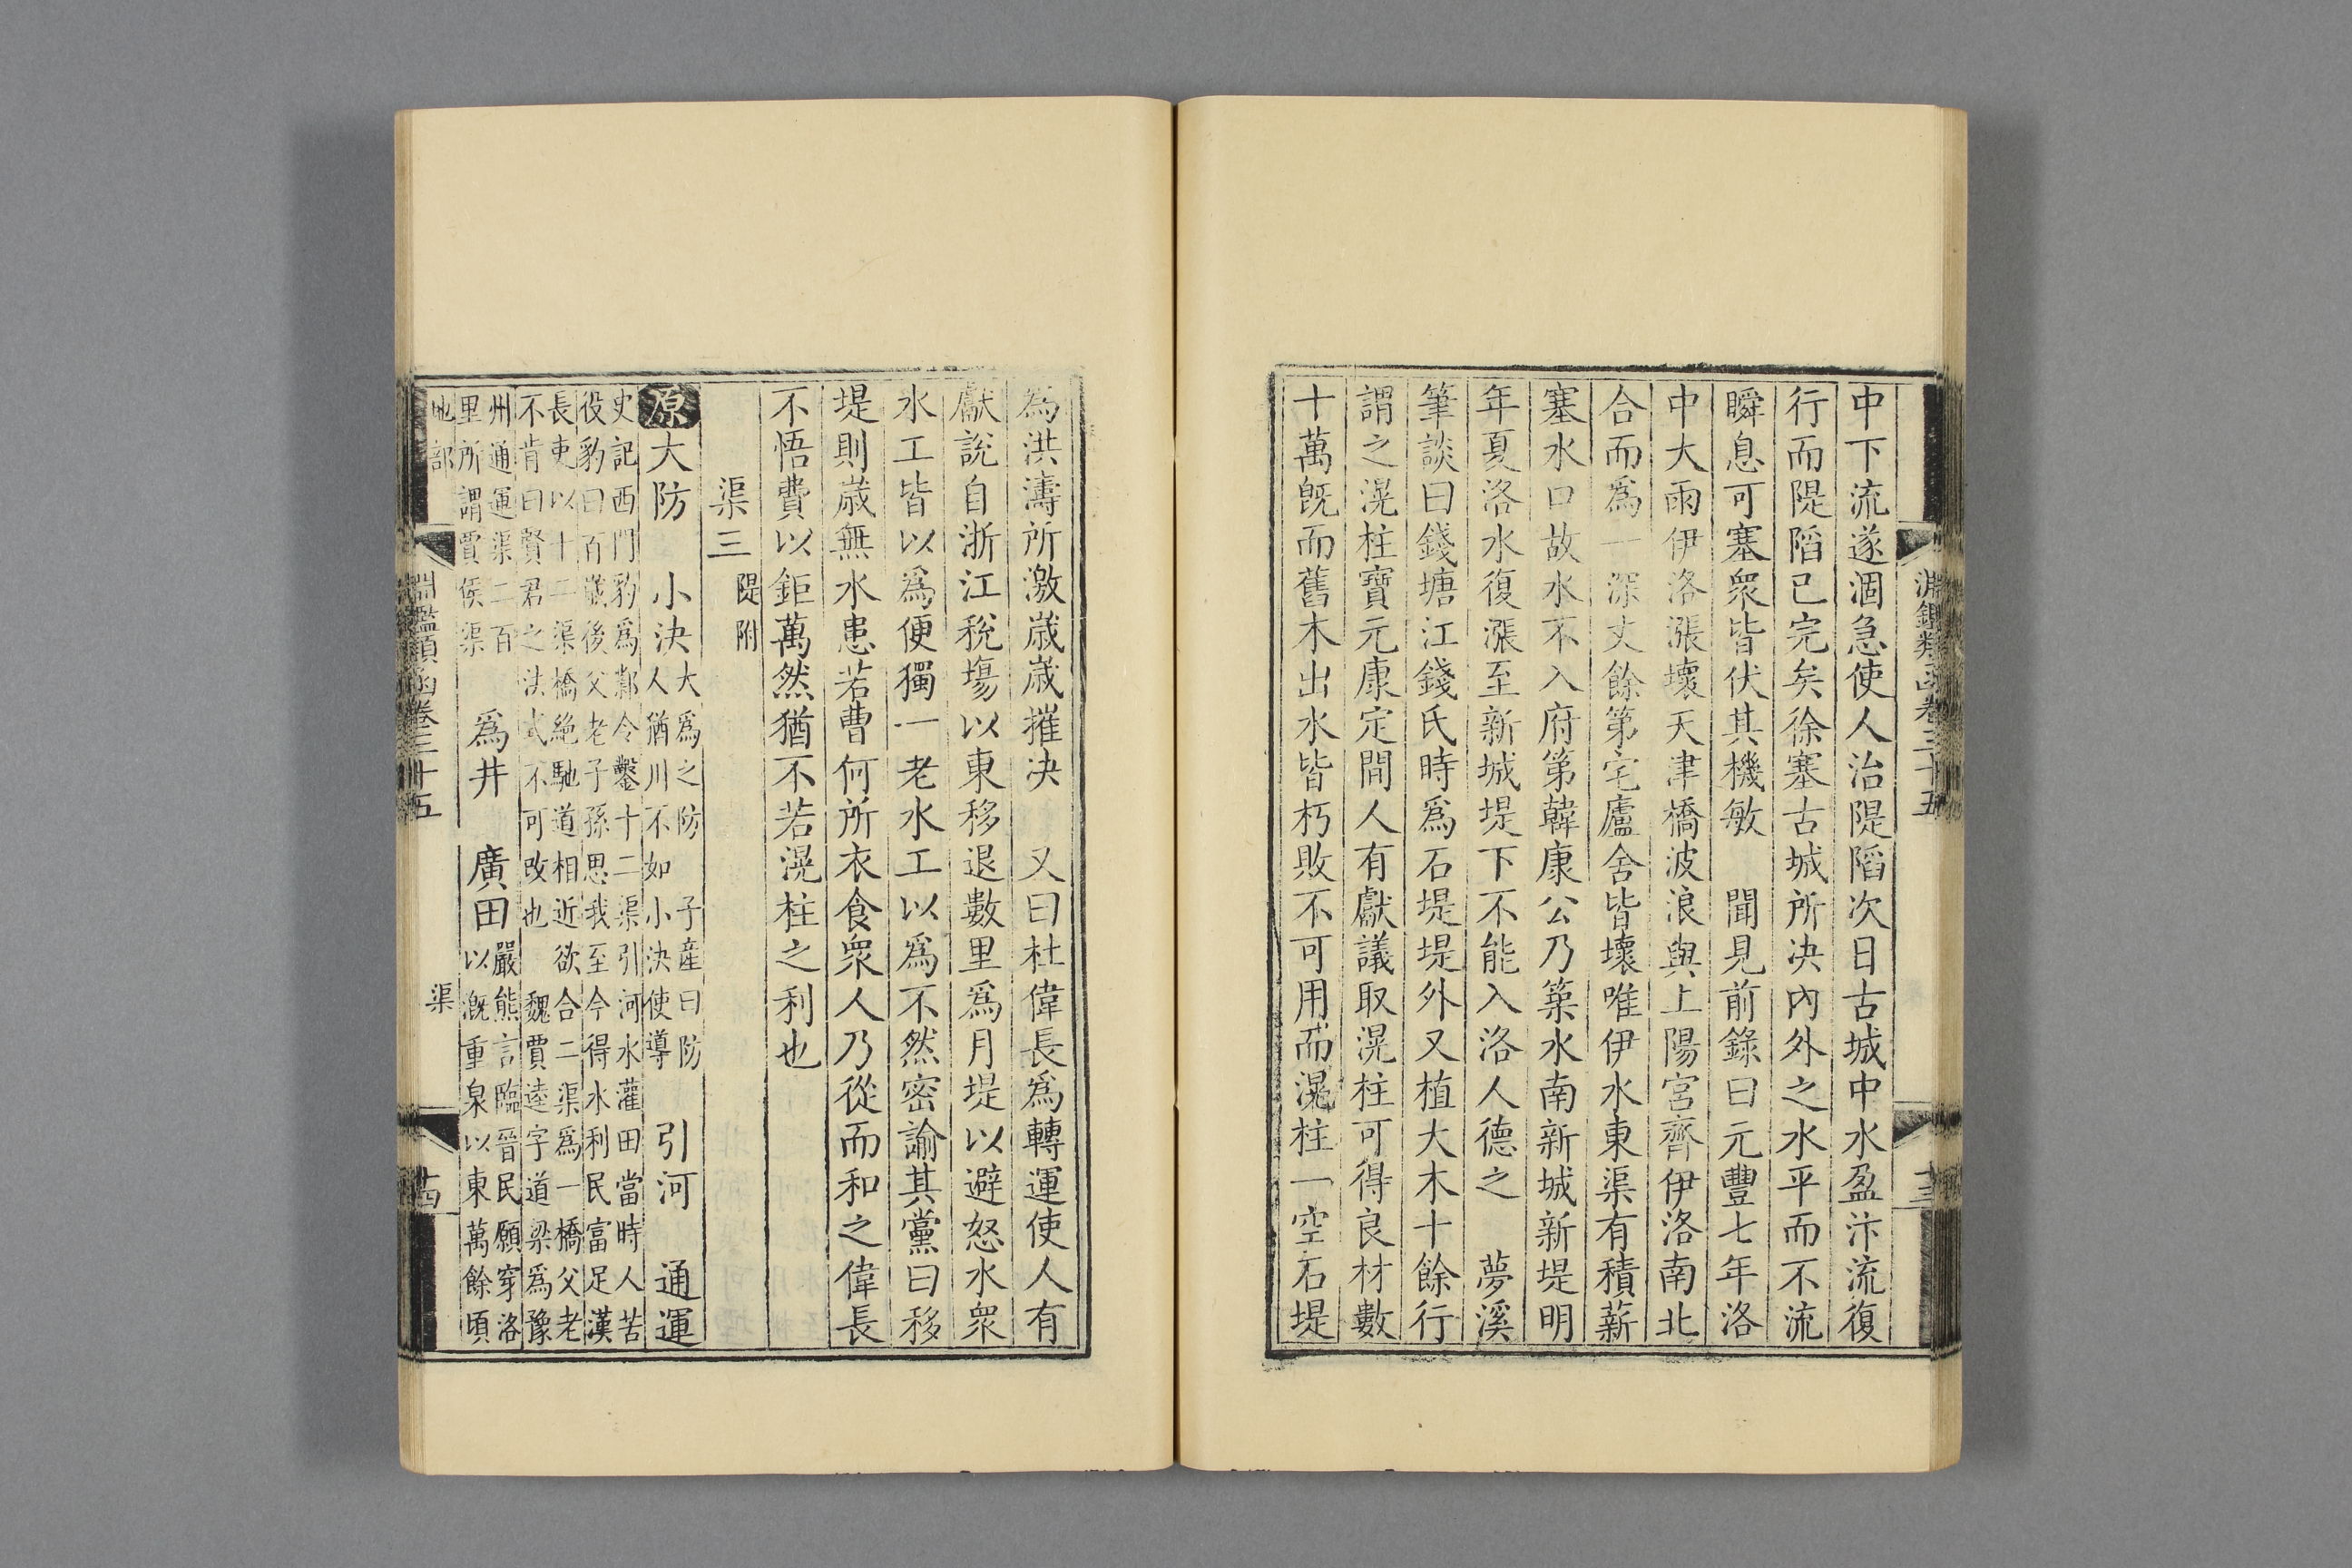 淵鑑類函卷三十五
十三
中下流遂涸急使人治隄陷次日古城中水盈汴流復
行而隄陷已完矣徐塞古城所决內外之水平而不流
瞬息可塞衆皆伏其機敏　聞見前錄曰元豐七年洛
中大雨伊洛漲壞天津橋波浪與上陽宮齊伊洛南北
合而爲一深丈餘第宅廬舍皆壞唯伊水東渠有積薪
塞水口故水不入府第韓康公乃築水南新城新堤明
年夏洛水復漲至新城堤下不能入洛人德之　夢溪
筆談曰錢塘江錢氏時爲石堤堤外又植大木十餘行
謂之滉柱寶元康定間人有獻議取滉柱可得良材數
十萬旣而舊木出水皆朽敗不可用而滉柱一空石堤
為洪濤所激歲歲摧决　又曰杜偉長爲轉運使人有
獻說自浙江稅塲以東移退數里爲月堤以避怒水衆
水工皆以爲便獨一老水工以爲不然密諭其黨曰移
堤則歲無水患若曹何所衣食衆人乃從而和之偉長
不悟費以鉅萬然猶不若滉柱之利也
渠三 隄附
原大防　小決 大爲之防　子產曰防人猶川不如小決使導　引河　通運
史記西門豹爲鄴令鑿十二渠引河水灌田當時人苦
役豹曰百歲後父老子孫思我至今得水利民富足漢
長吏以十二渠橋絶馳道相近欲合二渠爲一橋父老
不肯曰賢君之法式不可改也　魏賈逵字道梁爲豫
州通運渠二百
里所謂賈侯渠　爲井　廣田 嚴熊言臨晉民願穿洛
以漑重泉以東萬餘頃
地部
淵鑑類函卷三十五
渠
十四